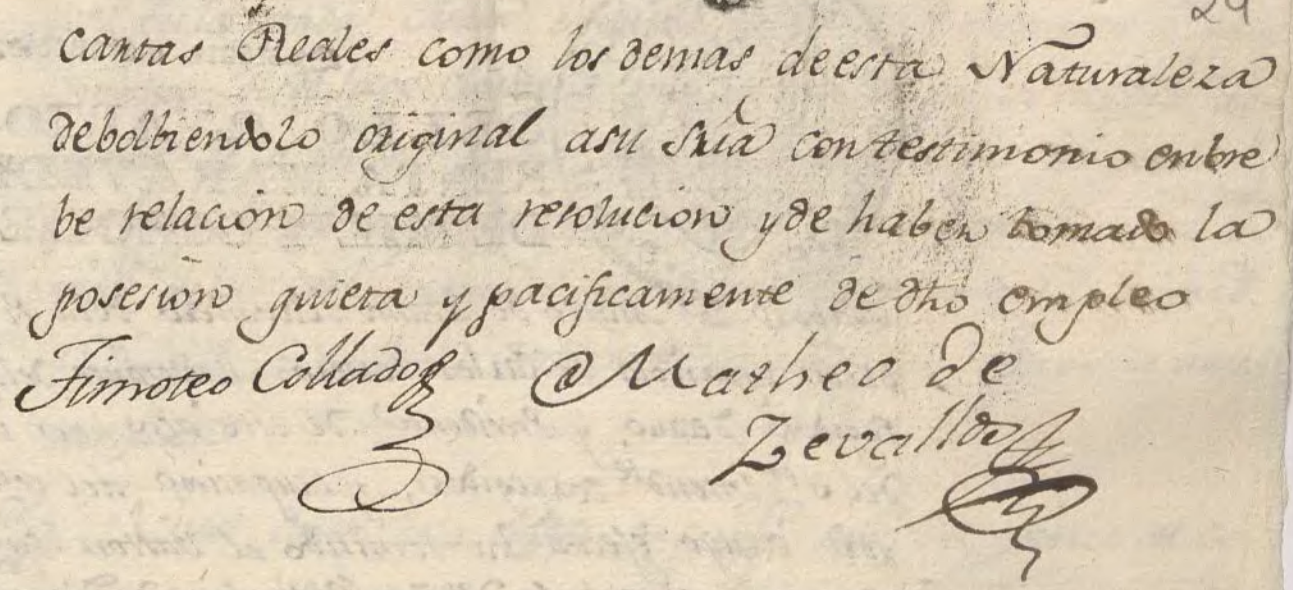 24
Cartas Reales como los demas de esta Naturaleza
debolbiendolo original asu Sria con testimonio enbre
be relacion de esta resolucion y de haber tomado la
posesion quieta y pacificamente de dho empleo
Timoteo Collados Matheo de
Zevallos